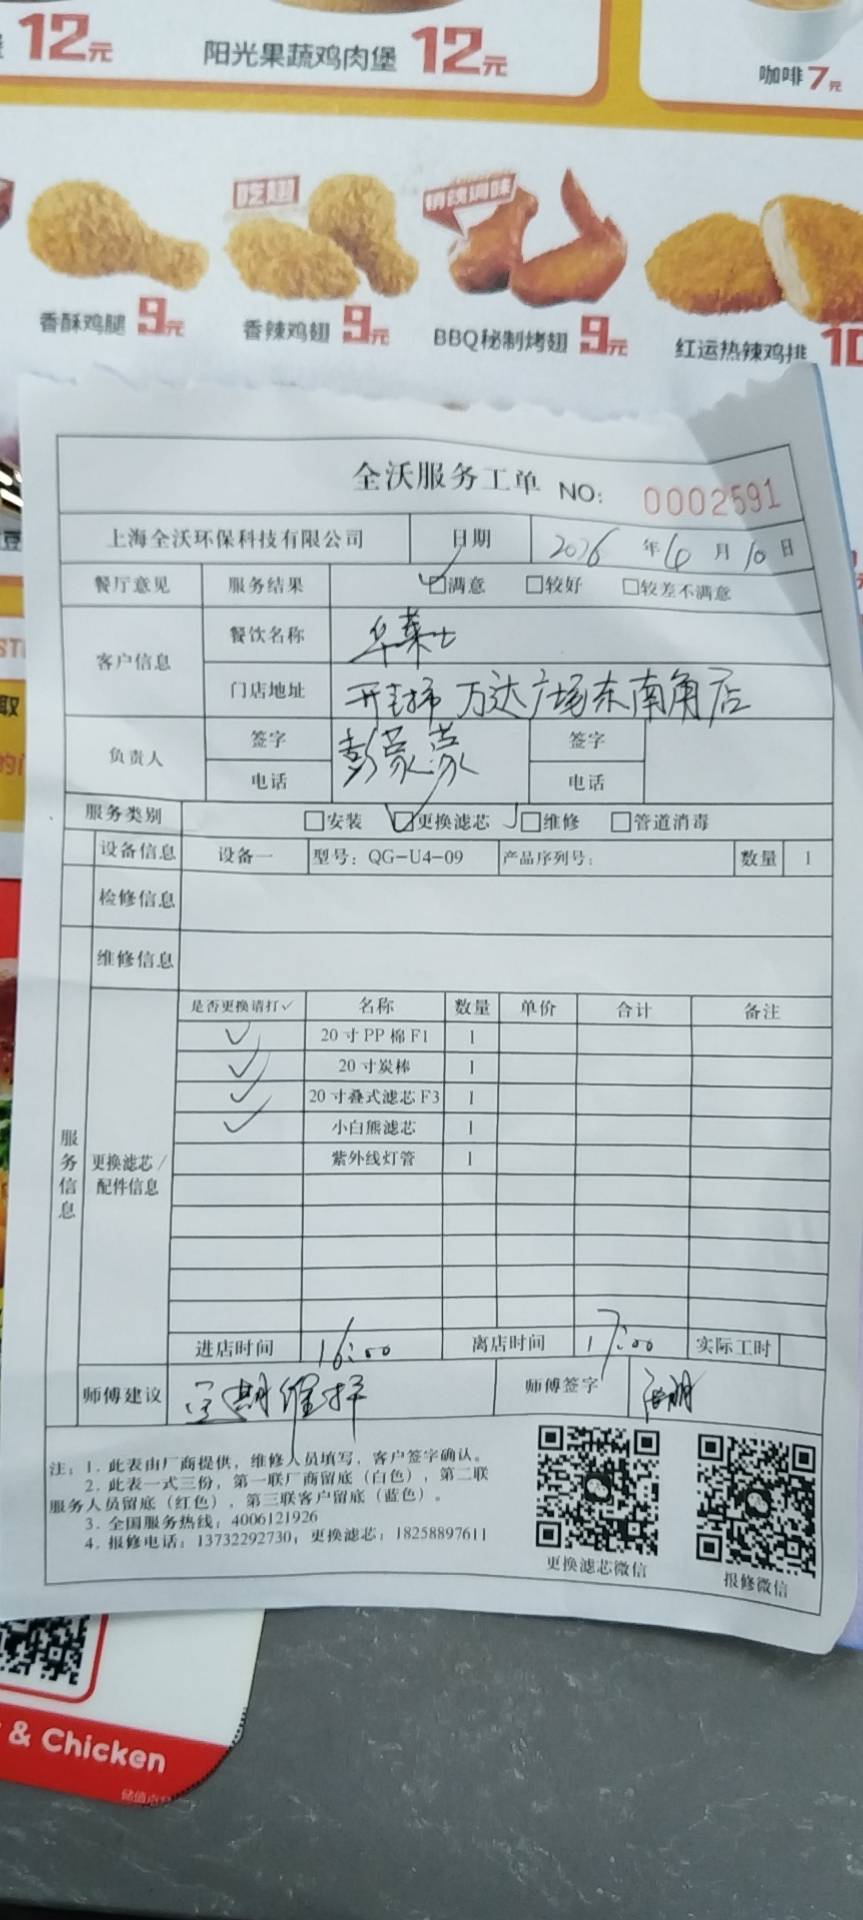 12元
阳光果蔬鸡肉堡 12元
咖啡 7元
吃翅
香酥鸡腿 9元
香辣鸡翅 9元
BBQ秘制烤翅 9元
红运热辣鸡排 10
全沃服务工单 NO: 0002591
上海全沃环保科技有限公司 日期 2026 年 4 月 10 日
餐厅意见 服务结果 ☑满意 □较好 □较差不满意
客户信息 餐饮名称 华莱士
门店地址 开封市万达广场东南角店
负责人 签字 彭蒙蒙 签字
电话 电话
服务类别 □安装 ☑更换滤芯 □维修 □管道消毒
设备信息 设备一 型号: QG-U4-09 产品序列号: 数量 1
检修信息
维修信息
服务信息
更换滤芯/配件信息
是否更换请打✓ 名称 数量 单价 合计 备注
✓ 20寸PP棉F1 1
✓ 20寸炭棒 1
✓ 20寸叠式滤芯F3 1
✓ 小白熊滤芯 1
紫外线灯管 1
进店时间 16:00 离店时间 17:00 实际工时
师傅建议 定期维护 师傅签字
注: 1. 此表由厂商提供, 维修人员填写, 客户签字确认。
2. 此表一式三份, 第一联厂商留底 (白色), 第二联
服务人员留底 (红色), 第三联客户留底 (蓝色)。
3. 全国服务热线: 4006121926
4. 报修电话: 13732292730, 更换滤芯: 18258897611
更换滤芯微信
报修微信
& Chicken